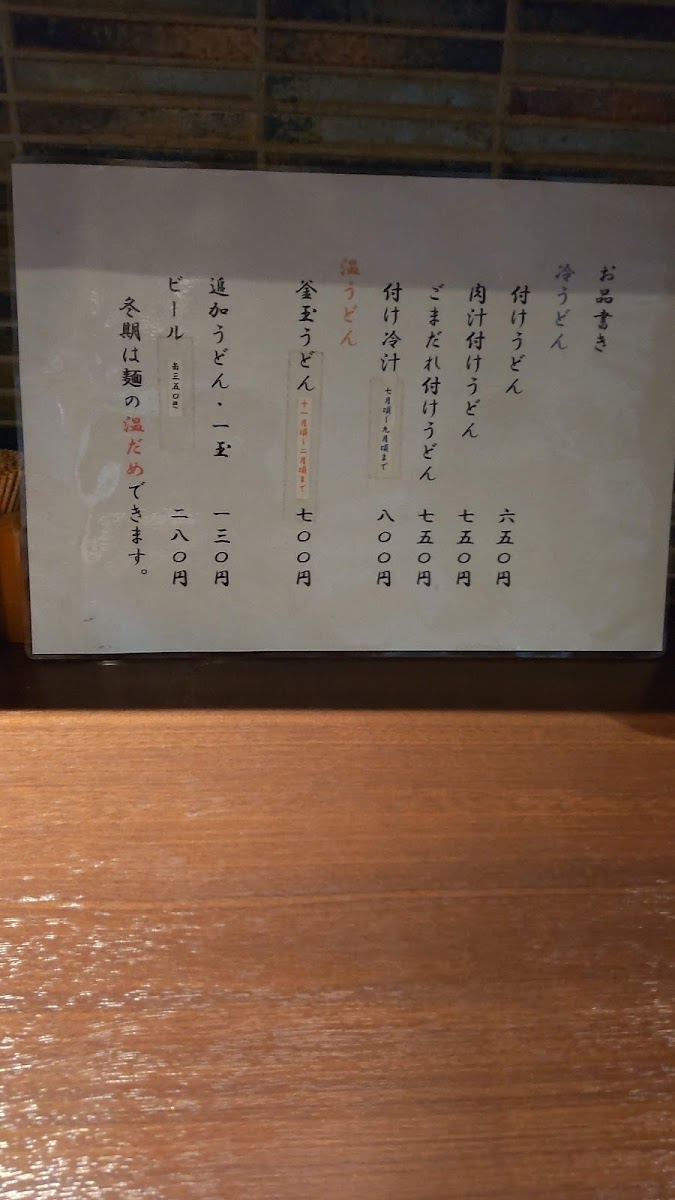 お品書き
冷うどん
付けうどん 六五〇円
肉汁付けうどん 七五〇円
ごまだれ付けうどん 七五〇円
付け冷汁 七月頃〜九月頃まで 八〇〇円
温うどん
釜玉うどん 十一月頃〜二月頃まで 七〇〇円
追加うどん・一玉 一三〇円
ビール 缶三五〇㎖ 二八〇円
冬期は麺の温だめできます。